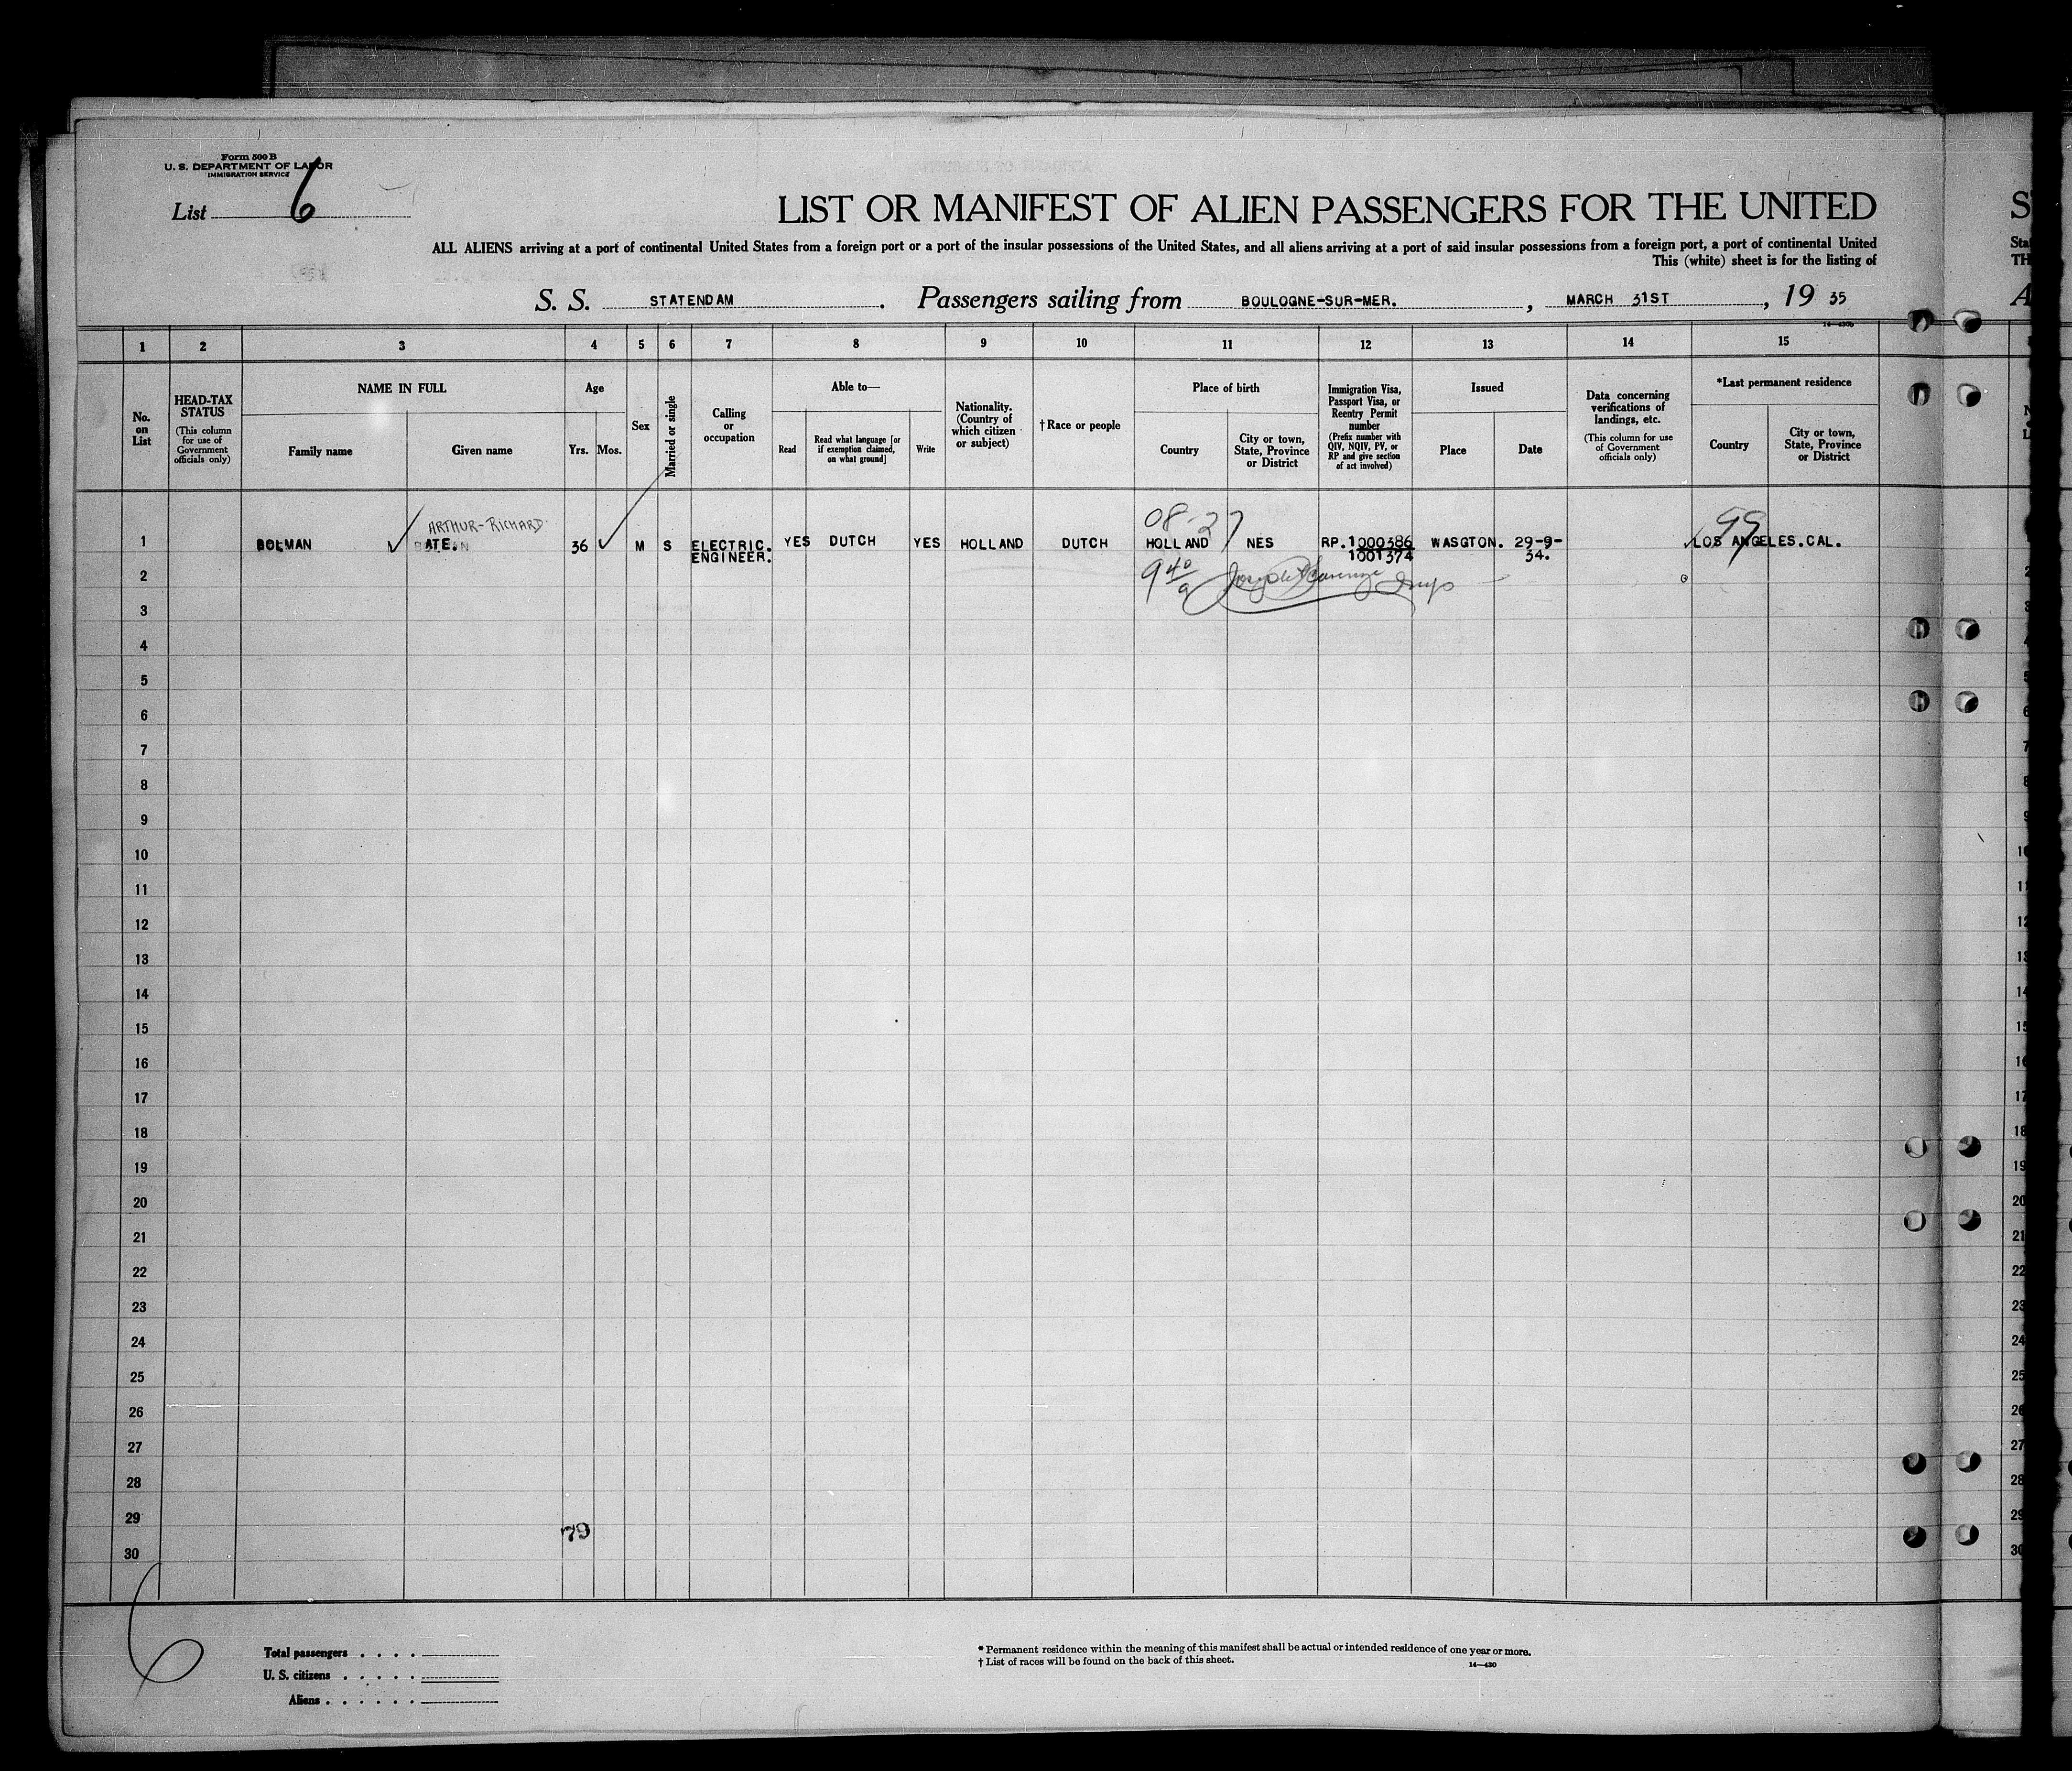 Form 500 B
U. S. DEPARTMENT OF LABOR
IMMIGRATION SERVICE
List 6
LIST OR MANIFEST OF ALIEN PASSENGERS FOR THE UNITED
ALL ALIENS arriving at a port of continental United States from a foreign port or a port of the insular possessions of the United States, and all aliens arriving at a port of said insular possessions from a foreign port, a port of continental United
This (white) sheet is for the listing of
S. S. STATENDAM. Passengers sailing from BOULOGNE-SUR-MER., MARCH 31ST, 19 35
1 2 3 4 5 6 7 8 9 10 11 12 13 14 15
No. on List
HEAD-TAX STATUS
(This column for use of Government officials only)
NAME IN FULL
Family name
Given name
Age
Yrs. Mos.
Sex
Married or single
Calling or occupation
Able to—
Read
Read what language [or if exemption claimed, on what ground]
Write
Nationality. (Country of which citizen or subject)
† Race or people
Place of birth
Country
City or town, State, Province or District
Immigration Visa, Passport Visa, or Reentry Permit number
(Prefix number with QIV, NQIV, PV, or RP and give section of act involved)
Issued
Place
Date
Data concerning verifications of landings, etc.
(This column for use of Government officials only)
*Last permanent residence
Country
City or town, State, Province or District
ARTHUR-RICHARD 99
1 BOLMAN ATE. 36 M S ELECTRIC. YES DUTCH YES HOLLAND DUTCH HOLLAND NES RP.1000386 WASGTON. 29-9- LOS ANGELES.CAL.
ENGINEER. 1001374 34.
2
3
4
5
6
7
8
9
10
11
12
13
14
15
16
17
18
19
20
21
22
23
24
25
26
27
28
29
79
30
6
Total passengers
U. S. citizens
Aliens
* Permanent residence within the meaning of this manifest shall be actual or intended residence of one year or more.
† List of races will be found on the back of this sheet.
14—430